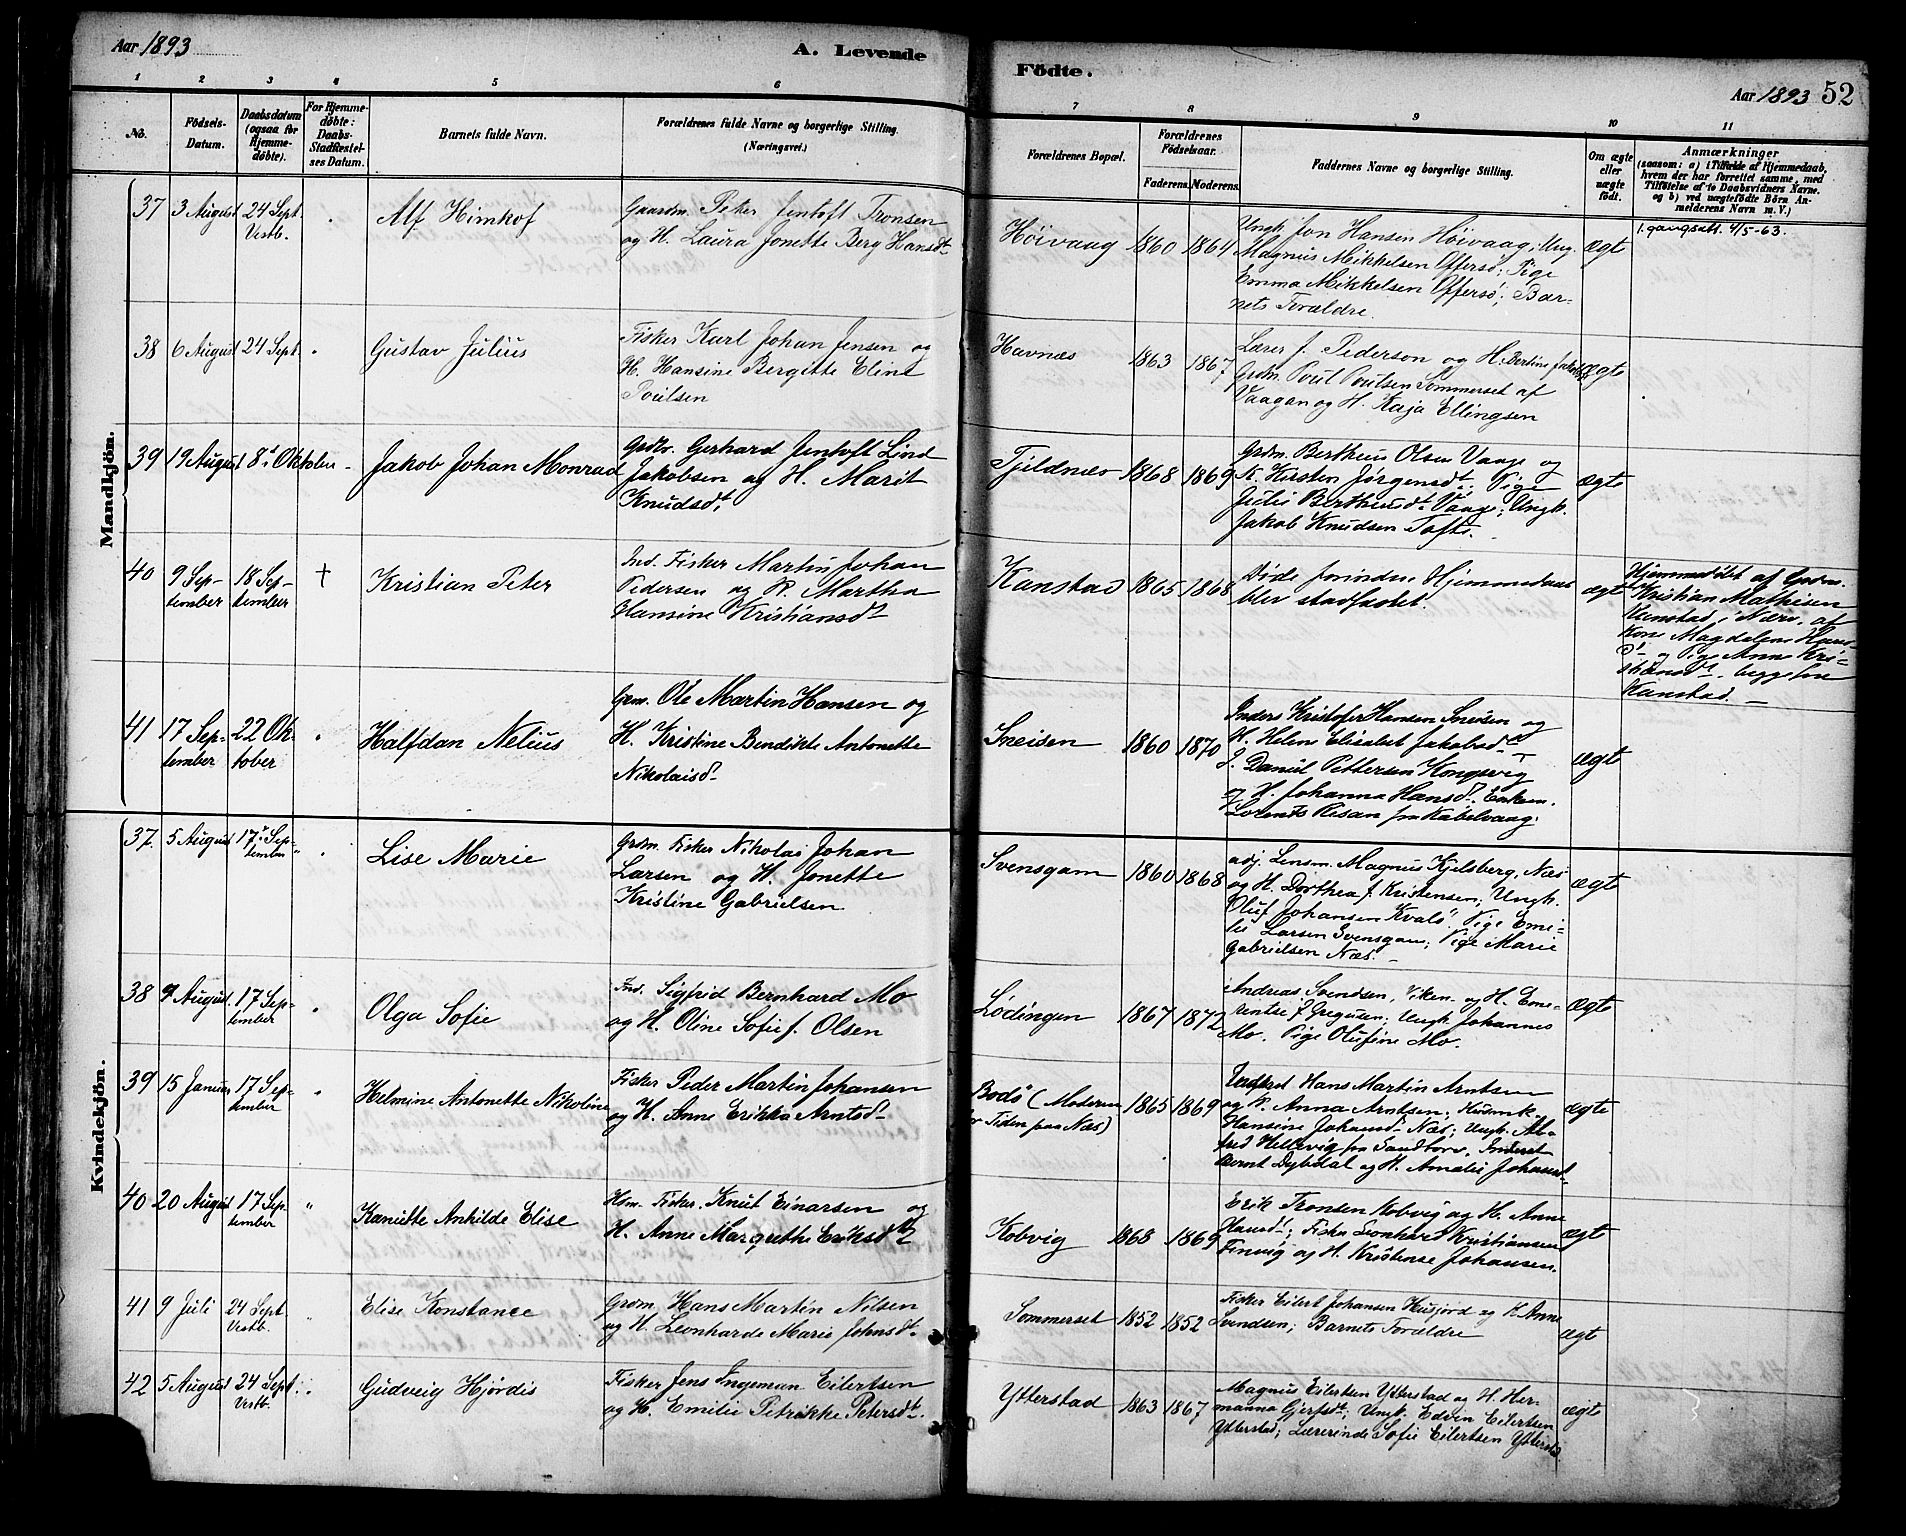 Aar 1893
A. Levende
Födte.
Aar 1893
52
1 2 3 4 5 6 7 8 9 10 11
No.
Födsels-Datum.
Daabsdatum (ogsaa for Hjemme-döbte).
For Hjemme-döbte: Daabs-Stadfæstel-ses Datum.
Barnets fulde Navn.
Forældrenes fulde Navne og borgerlige Stilling.
(Næringsvei.)
Forældrenes Bopæl.
Forældrenes Födselsaar.
Faderens. Moderens.
Faddernes Navne og borgerlige Stilling.
Om ægte eller uægte födt.
Anmærkninger
(saasom: a) i Tilfælde af Hjemmedaab, hvem der har forrettet samme, med Tilföielse af to Daabsvidners Navne. og b) ved uægtefödte Börn An-melderens Navn m. V.)
Mandkjön.
37 3 August 24 Sept Vestb. Alf Himkof
Gaardm. Peter Jentoft Tronsen
og H. Laura Jonette Berg Hansdt
Höivaag 1860 1864
Ungk. Jon Hansen Höivaag; Ung.
Magnus Mikkelsen Offersö; Pige
Emma Mikkelsen Offersö; Bar-
nets Forældre.
ægte
1. gangsatt. 4/5-63.
38 6 August 24 Sept. Gustav Julius
Fisker Karl Johan Jensen og
H. Hansine Bergitte Eline
Poulsen
Havnæs 1863 1867
Lærer J. Pederson og H. Bertine
Grdm. Poul Poulsen Sommerset af
Vaagan og H. Kaja Ellingsen
ægte
39 19 August 8' Oktober - Jakob Johan Monrad
Grdbr. Gerhard Jentoft Lind
Jakobsen og H. Marit
Knudsdt.
Tjeldnes 1868 1869
Grdm. Bertheus Olsen Vaage og
K. Kirsten Jörgensdt. Pige
Julie Bertheusdt Vaage; Ungk.
Jakob Knudsen Tofte.
ægte
40 9 Sep-tember 18 Sep-tember † Kristian Peter
Ind. Fisker Martin Johan
Pedersen og K. Martha
Hansine Kristiansdt
Kanstad 1865 1868
Döde forinden Hjemmedaab
blev stadfæstet.
ægte
Hjemmedöbt af Grdm.
Kristian Mathisen
Kanstad, i Nærv. af
Kone Magdalena Hans-
dt og Pige Anne Kri-
stiansdt, begge fra
Kanstad. -
41 17 Sep-tember 22 Ok-tober Halfdan Nelius
Grm. Ole Martin Hansen og
H. Kristine Bendikte Antonette
Nikolaisd.
Sneisen 1860 1870
Inders Kristofer Hansen Sneisen og
H. Helene Elisabet Jakobsd.
J. Daniel Pettersen Kongsvig
og H. Johanna Hansd. Enkem.
Lorents Risan fra Kabelvaag.
ægte
Kvindekjön.
37. 5 August 17' Sep-tember " Lise Marie
Grdm. Fisker Nikolai Johan
Larsen og H. Jonette
Kristine Gabrielsen
Svensgam 1860 1868
adj. Lensm. Magnus Kjelsberg, Næs
og H. Dorthea f. Kristensen; Ungk.
Oluf Johansen Kvalö; Pige Emi-
lie Larsen Svensgam; Pige Marie
Gabrielsen Næs. -
ægte
38 9 August 17 Sep-tember Olga Sofie
Ind. Sigfrid Bernhard Mo
og H. Oline Sofie f. Olsen
Lödingen 1867 1872
Andreas Svendsen, Viken og H. Eme-
rentse f. Gregusen; Ungk. Johannes
Mo. Pige Olufine Mo.
ægte
39 15 Januar 17 Sep-tember Helmine Antonette Nikoline
Fisker Peder Martin Johansen
og H. Anne Erikka Arntsd.
Bodö (Moderen
for Tiden paa Næs) 1865 1869
Hans Martin Arntsen
og K. Anna Arntsen; Husmk.
Hansine Johansd. Næs; Ungk. Al-
fred Hellevig fra Sandtorv. Inderst
Bernt Dybdal og H. Amalie Johansdt.
ægte
40 20 August 17 Sep-tember " Kanutte Anhilde Elise
Hsm. Fisker. Knut Einarsen og
H. Anne Margrethe Eriksdt
Kobvig 1868 1869
Erik Tronsen Kobvig og H. Anne
Hansdt; Fisker Leonhart Kristiansen
Finvig og H. Kristense Johansen.
ægte
41 9 Juli 24 Sept Vestb. Elise Konstance
Grdm. Hans Martin Nilsen
og H. Leonharde Marie Johnsdt.
Sommerset 1852 1852
Fisker Eilert Johansen Husjord og K. Anne
Svendsen; Barnets Forældre
ægte
42 5 August 24 Sept. Vestb. Gudveig Hjördis
Fisker Jens Ingeman Eilertsen
og H. Emilie Petrikke Petersdt.
Ytterstad 1863 1867
Magnus Eilertsen Ytterstad og H. Her-
manna Gjertsdt; Ungk. Edvin Eilertsen
Ytterstad; Lærerinde Sofie Eilertsen Ytterstad
ægte